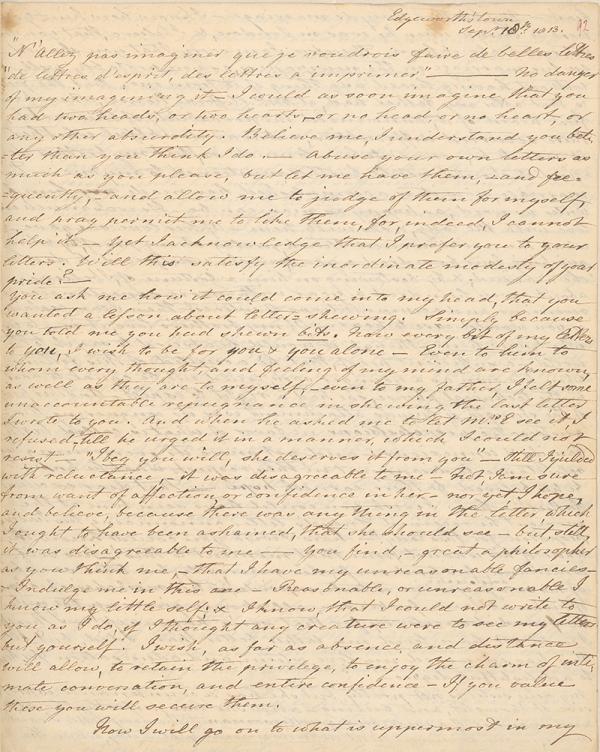 Edgeworthstown
Sept. 18th 1813. 92
"N'allez pas imaginer que je voudrois faire de belles lettres
"de lettres d'esprit, des lettres a imprimer" —— No danger
of my imagining it — I could as soon imagine that you
had two heads, or two hearts, or no head or no heart, or
any other absurdity. Believe me, I understand you bet-
-ter than you think I do. — Abuse your own letters as
much as you please, but let me have them, — and fre-
-quently, — and allow me to judge of them for myself,
and pray permit me to like them, for, indeed, I cannot
help it — Yet I acknowledge that I prefer you to your
letters. Will this satisfy the inordinate modesty of your
pride? —
You ask me how it could come into my head, that you
wanted a lesson about letter-shewing. Simply because
you told me you had shewn bits. Now every bit of my letters
to you, I wish to be for you & you alone — Even to him to
whom every thought, and feeling of my mind are known,
as well as they are to myself, — even to my father, I felt some
unaccountable repugnance in shewing the last letter
I wrote to you. And when he asked me to let Mrs. E see it, I
refused, till he urged it in a manner, which I could not
resist — "I beg you will, she deserves it from you" — Still I yielded
with reluctance, — it was disagreeable to me — Not, I am sure
from want of affection, or confidence in her — nor yet I hope,
and believe, because there was any thing in the letter, which
I ought to have been ashamed, that she should see — but still,
it was disagreeable to me —— You find, — great a philosopher
as you think me, — that I have my unreasonable fancies —
Indulge me in this one — Reasonable, or unreasonable I
know my little self, & I know, that I could not write to
you as I do, if I thought any creature were to see my letters
but yourself. I wish, as far as absence, and distance
will allow, to retain the privilege, to enjoy the charm of inti-
mate conversation, and entire confidence — If you value
these you will secure them.
Now I will go on to what is uppermost in my